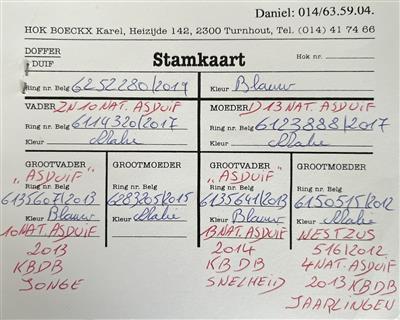 Daniel: 014/63.59.04.
HOK BOECKX Karel, Heizijde 142, 2300 Turnhout, Tel. (014) 41 74 66
DOFFER
DUIF
Stamkaart
Hok nr.
Ring nr. Belg 6252280/2019
Kleur Blauw
VADER ZN 10 NAT. ASDUIF
Ring nr. Belg 6114320/2017
Kleur
MOEDER D 13 NAT. ASDUIF
Ring nr. Belg 6123888/2017
Kleur
GROOTVADER
"ASDUIF"
Ring nr. Belg
6135607/2013
Kleur Blauw
10 NAT. ASDUIF
2013
KBDB
JONGE
GROOTMOEDER
Ring nr. Belg
6283205/2015
Kleur
GROOTVADER
"ASDUIF"
Ring nr. Belg
6135641/2013
Kleur Blauw
13 NAT. ASDUIF
2014
KBDB
SNELHEID
GROOTMOEDER
Ring nr. Belg
6150515/2012
Kleur
NESTZUS
516/2012
4 NAT. ASDUIF
2013 KBDB
JAARLINGEN